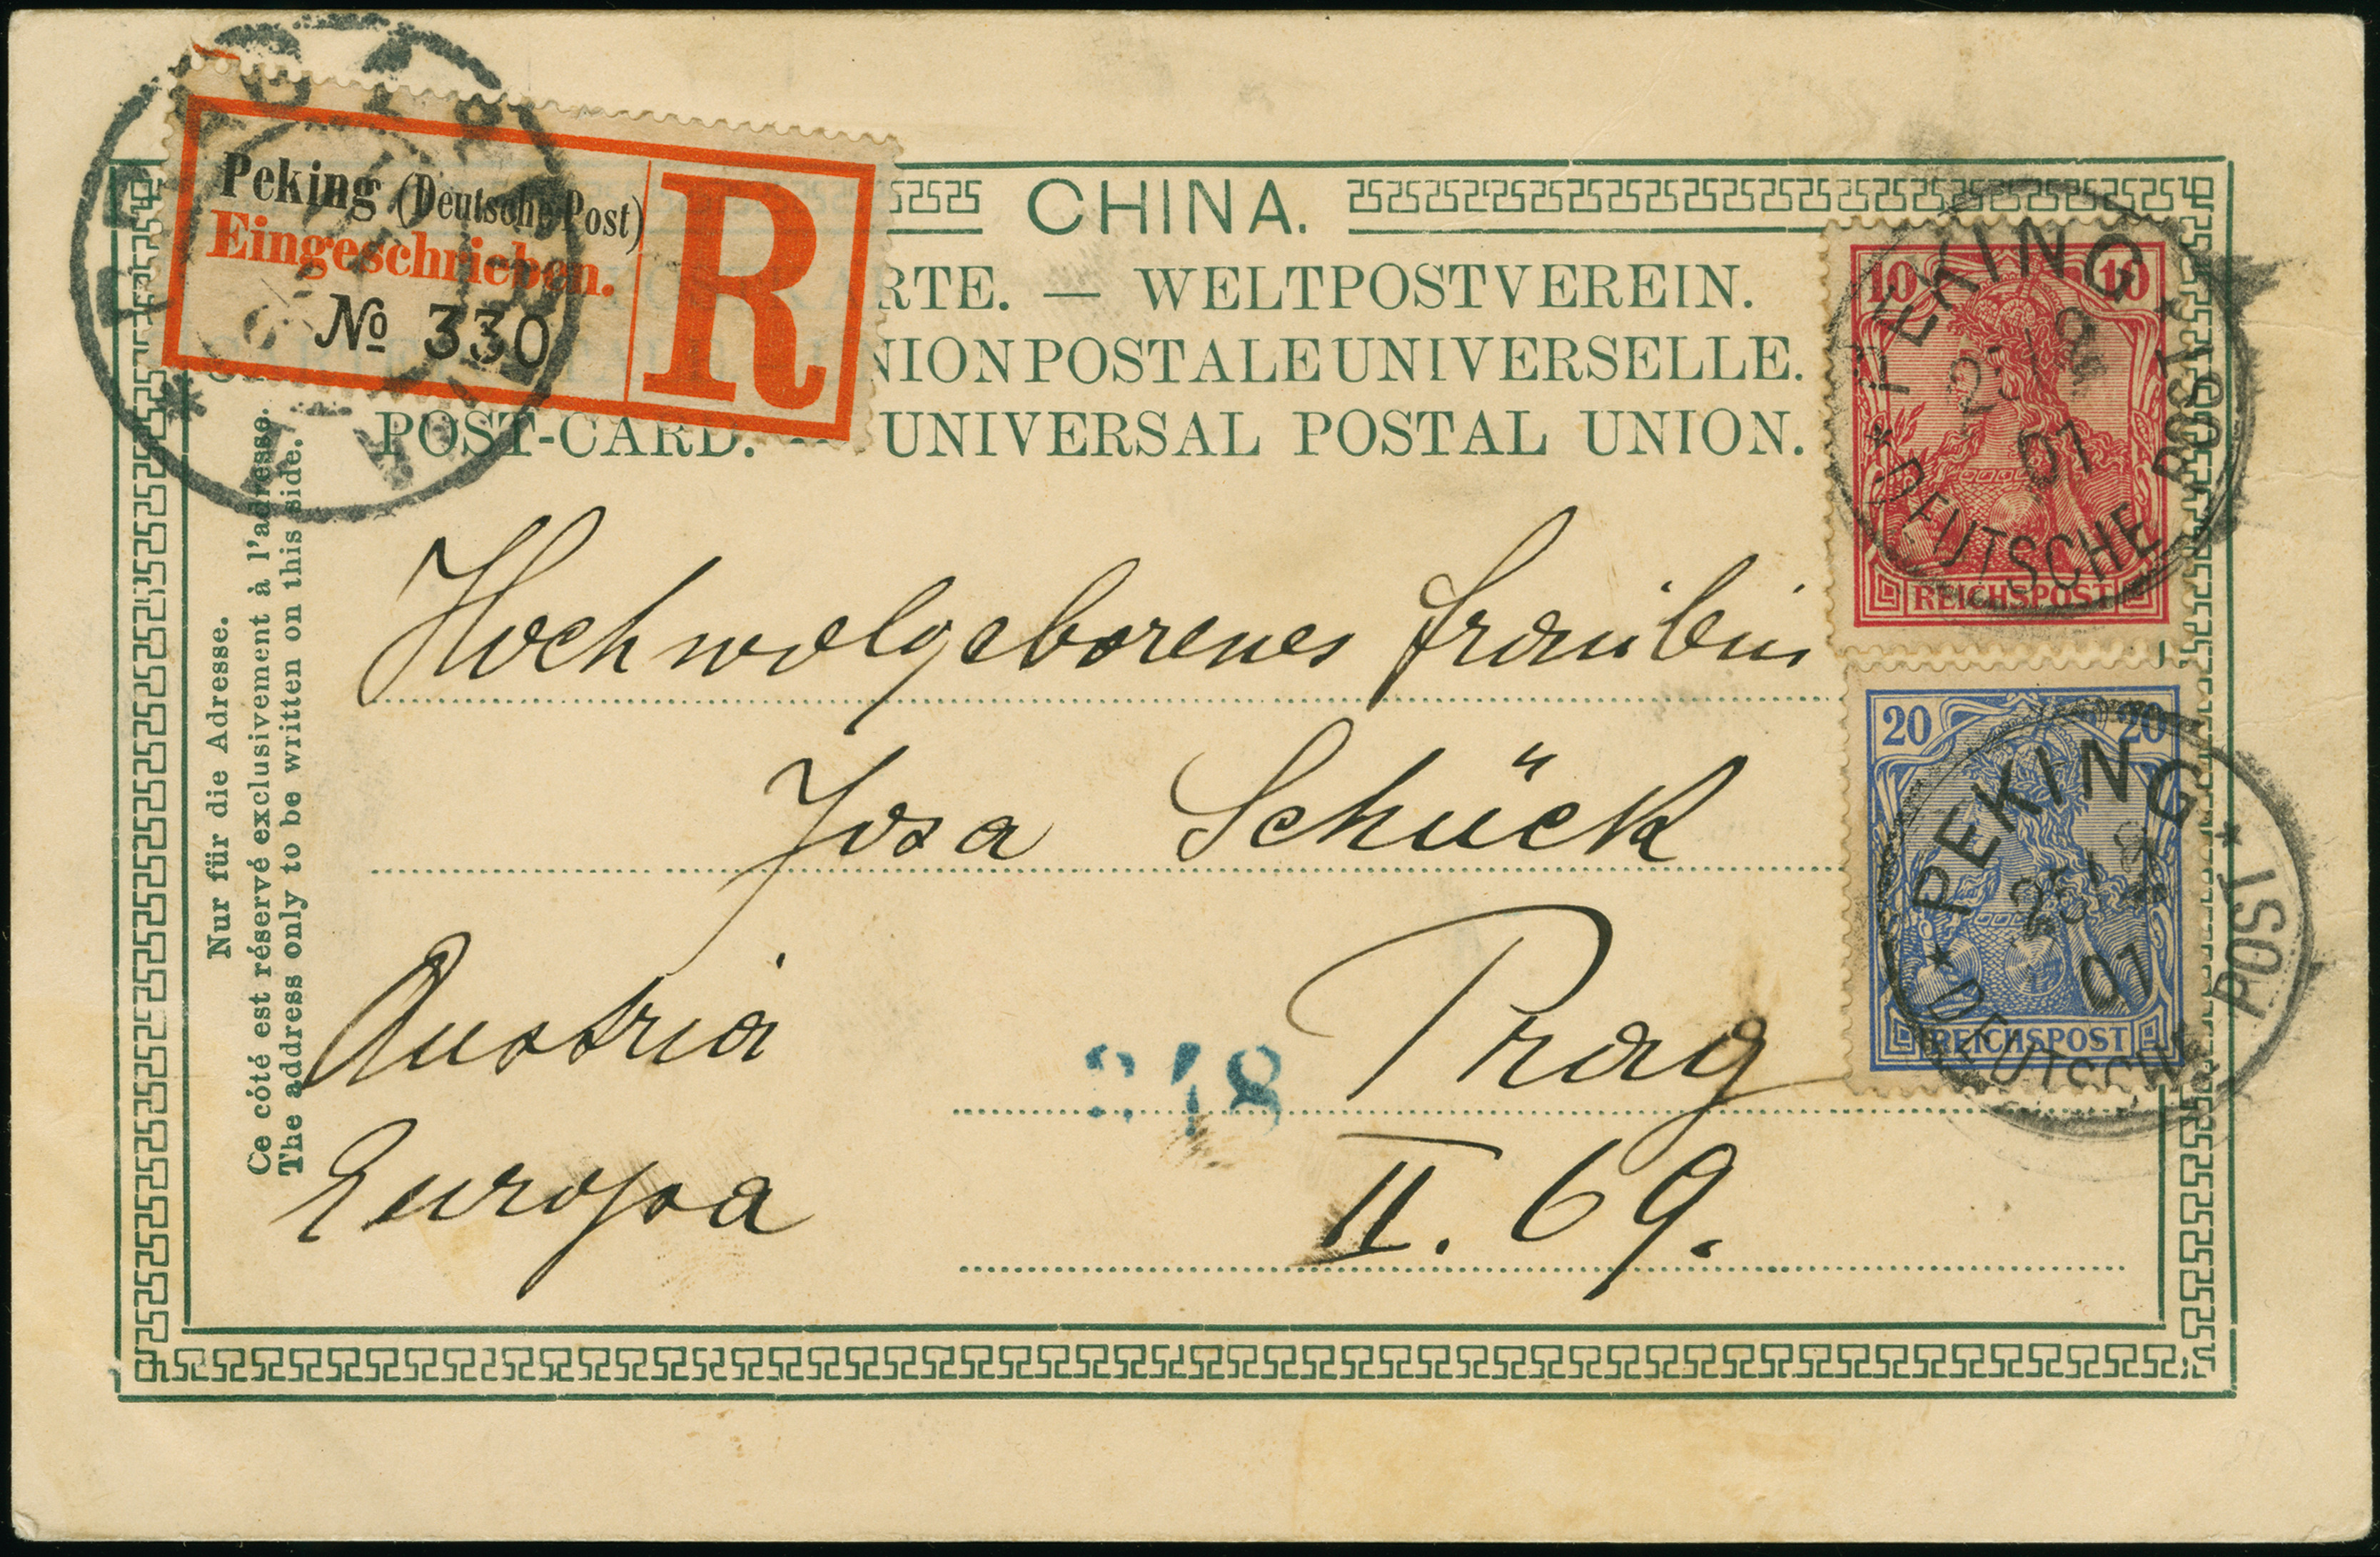 Peking (Deutsche Post)
Eingeschrieben.
№ 330
R
CHINA.
RTE. — WELTPOSTVEREIN.
NION POSTALE UNIVERSELLE.
POST-CARD. — UNIVERSAL POSTAL UNION.
Nur für die Adresse.
Ce côté est réservé exclusivement à l'adresse.
The address only to be written on this side.
10 10
REICHSPOST
PEKING
25/8
01
* DEUTSCHE POST *
20 20
REICHSPOST
PEKING
25/8
01
* DEUTSCHE POST *
Hochwolgeborenes Fräulein
Josa Schück
Austria Prag
248
Europa II. 69.